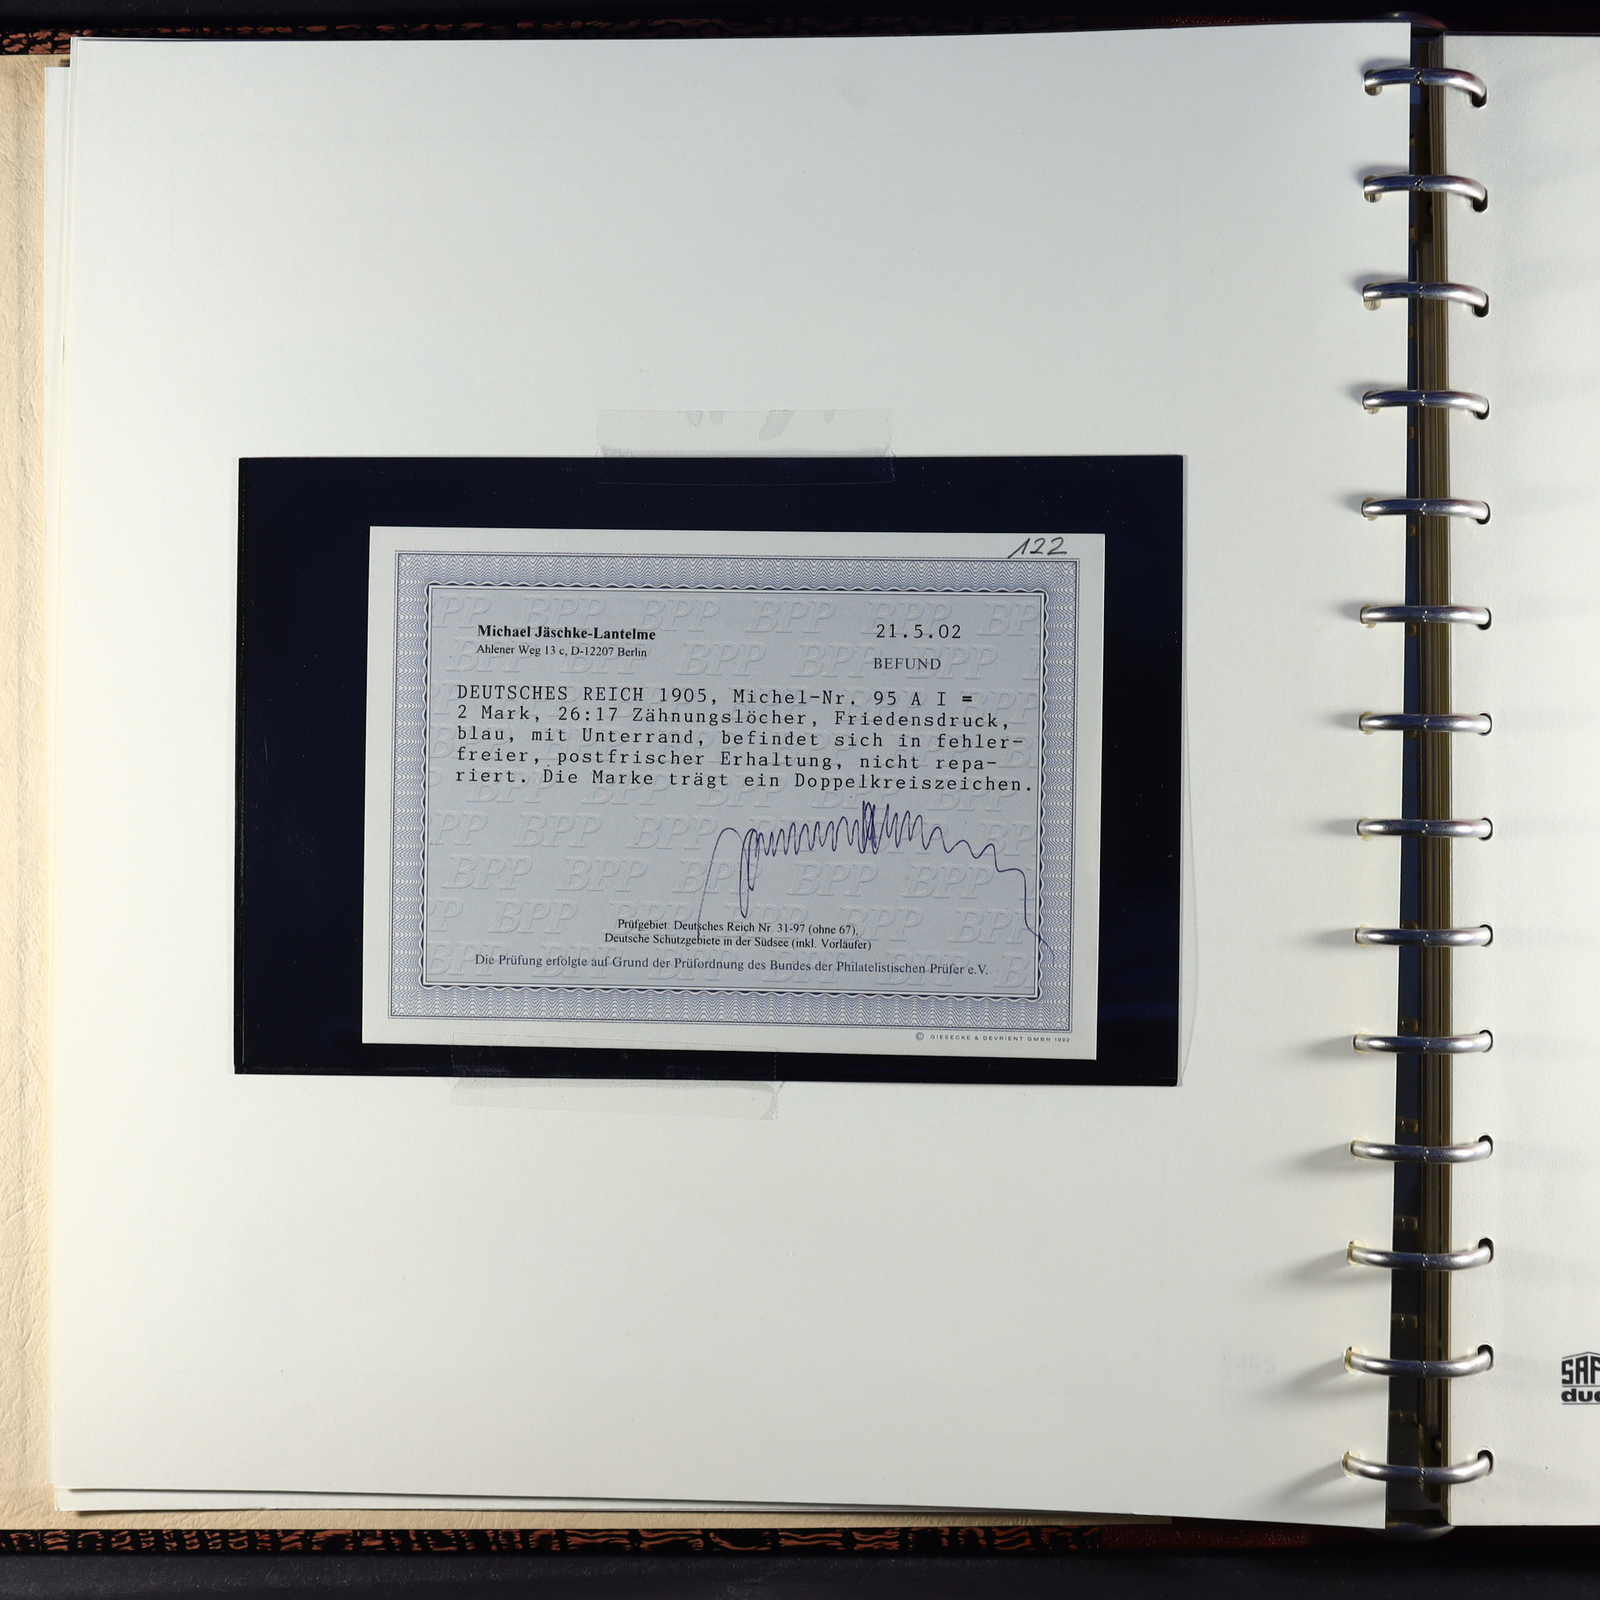 122
Michael Jäschke-Lantelme
21.5.02
Ahlener Weg 13 c, D-12207 Berlin
BEFUND
DEUTSCHES REICH 1905, Michel-Nr. 95 A I =
2 Mark, 26:17 Zähnungslöcher, Friedensdruck,
blau, mit Unterrand, befindet sich in fehler-
freier, postfrischer Erhaltung, nicht repa-
riert. Die Marke trägt ein Doppelkreiszeichen.
Prüfgebiet: Deutsches Reich Nr. 31-97 (ohne 67),
Deutsche Schutzgebiete in der Südsee (inkl. Vorläufer)
Die Prüfung erfolgte auf Grund der Prüfordnung des Bundes der Philatelistischen Prüfer e.V.
© GIESECKE & DEVRIENT GMBH 1992
BPP BPP BPP BPP BPP
SAF
dua